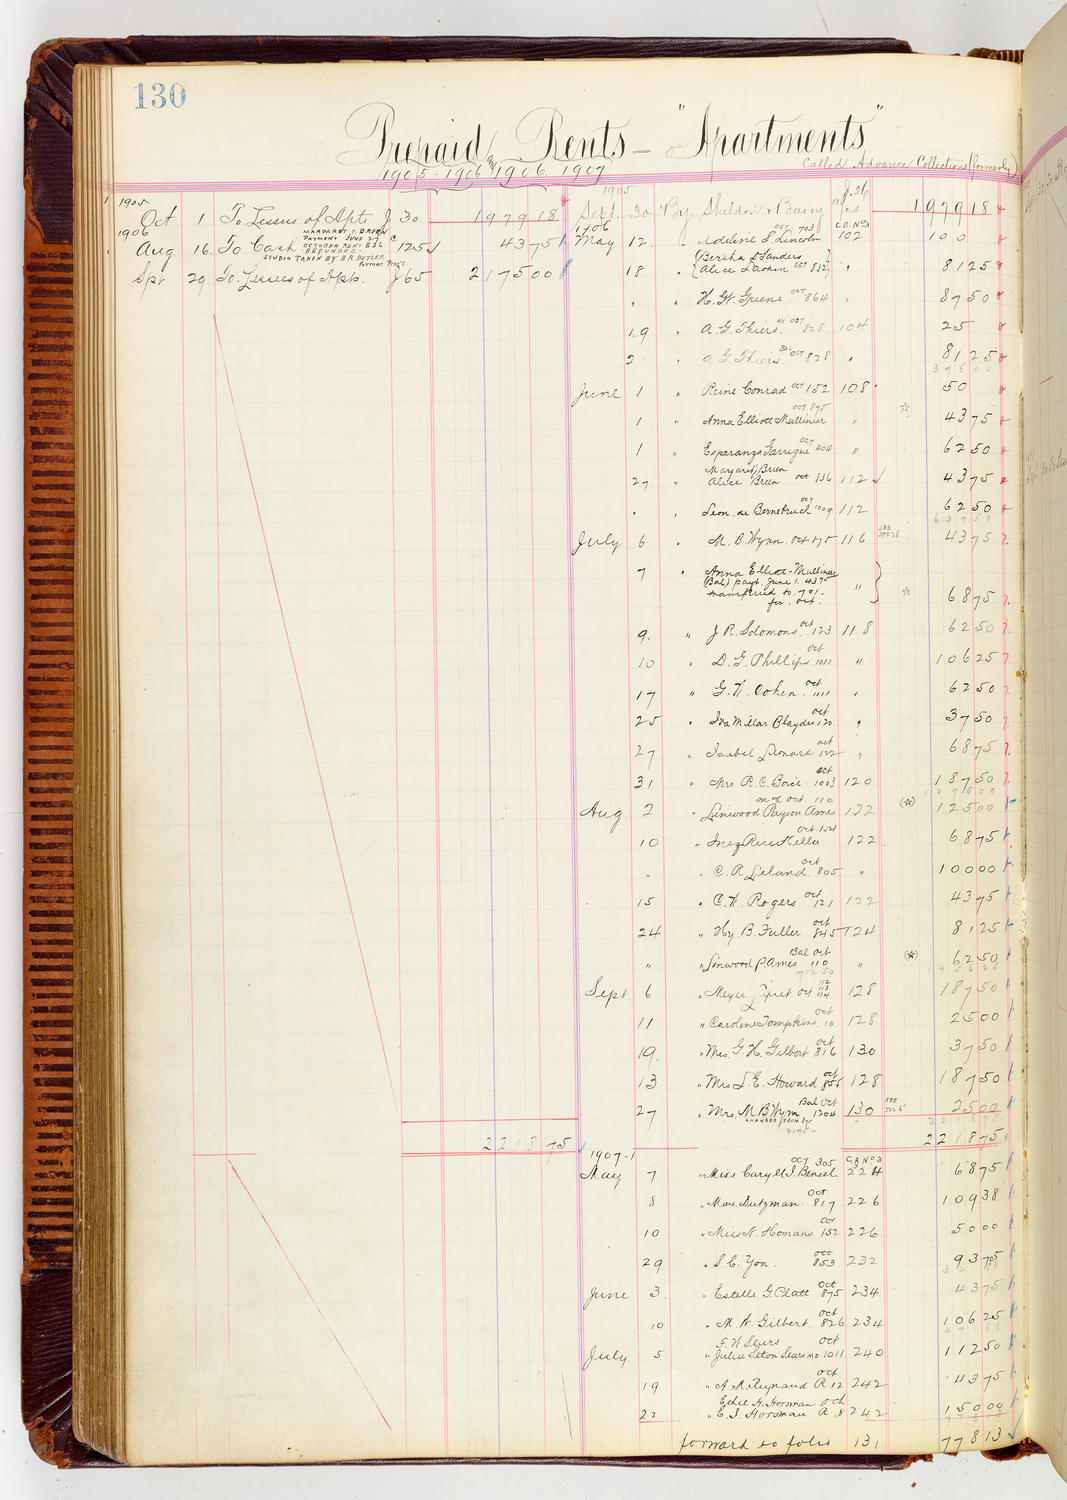 130
Prepaid Rents - "Apartments"
Called Advance Collections (formerly)
1905-1906 and 1906 1907
1905
Oct 1 To Lessees of Apts J 30 19791 8
1906
MARGARET T. BREEN
PAYMENT JUNE 27
Aug 16. To Cash OCTOBER RENT 836 C 125 √ 43 75
REFUNDED-
STUDIO TAKEN BY H.R. BUTLER
Spt 29 To Lessees of Apts. J 65 2175 00
2218 75
1905
Sept. 30 By Sheldon & Barry J. 26 19791 8
1906
C.B. No 3
May 12. " Adeline S. Lincoln OCT. 703 102 100
18 " {Bertha L Sanders
Alice Larkin OCT 832} " 81 25
" " H. W. Greene OCT 864 " 87 50
19 " A. G. Thiers. a/c OCT 828 104 25
21 " A G Thiers Bal OCT 828 " 81 25
375 00
June 1 " Reine Conrad OCT 152 108 50
1 " Anna Elliott Mullinier OCT 875 " ☆ 43 75
1 " Esparanza Garrigue OCT 404 " 62 50
27 " Margaret Breen
Alice Breen OCT 836 112 √ 43 75
" " Leon de Bernebruch OCT 1009 112 62 50
637 50
July 6 " M. B. Wynn. Oct 875 116 SEE SPT. 28 43 75
7 " Anna Elliott-Mullinier
(Bal) payt. June 1. 43 75
transferred to 701-
for Oct. " ☆ 68 75
9. " J R. Solomons. Oct 123 118 62 50
10 " D. G. Phillips Oct 1011 " 106 25
17 " G. W. Cohen. Oct 1111 " 62 50
25 " Iva Millar Blaydes Oct 120 " 37 50
27 " Isabel Leonard Oct 122 " 68 75
31 " Mrs R. C. Bovie Oct 1003 120 187 50
Aug 2 " Linwood Payson Ames on a/c Oct. 110 122 (☆) 125 00
10 " Inez Rice Keller Oct 124 122 68 75
" " C. R. Leland Oct 805 " 100 00
15 " C. W. Rogers Oct 121 122 43 75
24 " Hy. B. Fuller Oct 845 124 81 25
" " Linwood P. Ames Bal Oct 110 " (☆) 62 50
Sept 6 " Meyer Oct 112 113 114 128 187 50
11 " Caroline Tompkins Oct 10 128 25 00
19. " Mrs. G. H. Gilbert Oct 816 130 37 50
13 " Mrs L. E. Howard Oct 855 128 187 50
27 " Mrs. M B Wynn Bal Oct 1204 130 SEE JUL 6 25 00
CHANGED FROM 875
2218 75
1907-
C.B. No 3
May 7 " Miss Caryll I. Bensel OCT 305 224 68 75
8 " Max Lutzman Oct 817 226 109 38
10 " Miss K. Homans Oct 152 226 50 00
29 " S. C. Yon. Oct 853 232 93 75
June 3 " Estelle G. Platt Oct 875 234 43 75
10 " M. W. Gilbert. Oct 826 234 106 25
July 5 " G. W. Sears
Julia Seton Sears MD Oct 1011 240 112 50
19 " A. M. Reynaud Oct R 12 242 43 75
22 " Ethel H. Horsman
E. I. Horsman Oct R. 8 242 150 00
forward to folio 131 778 13